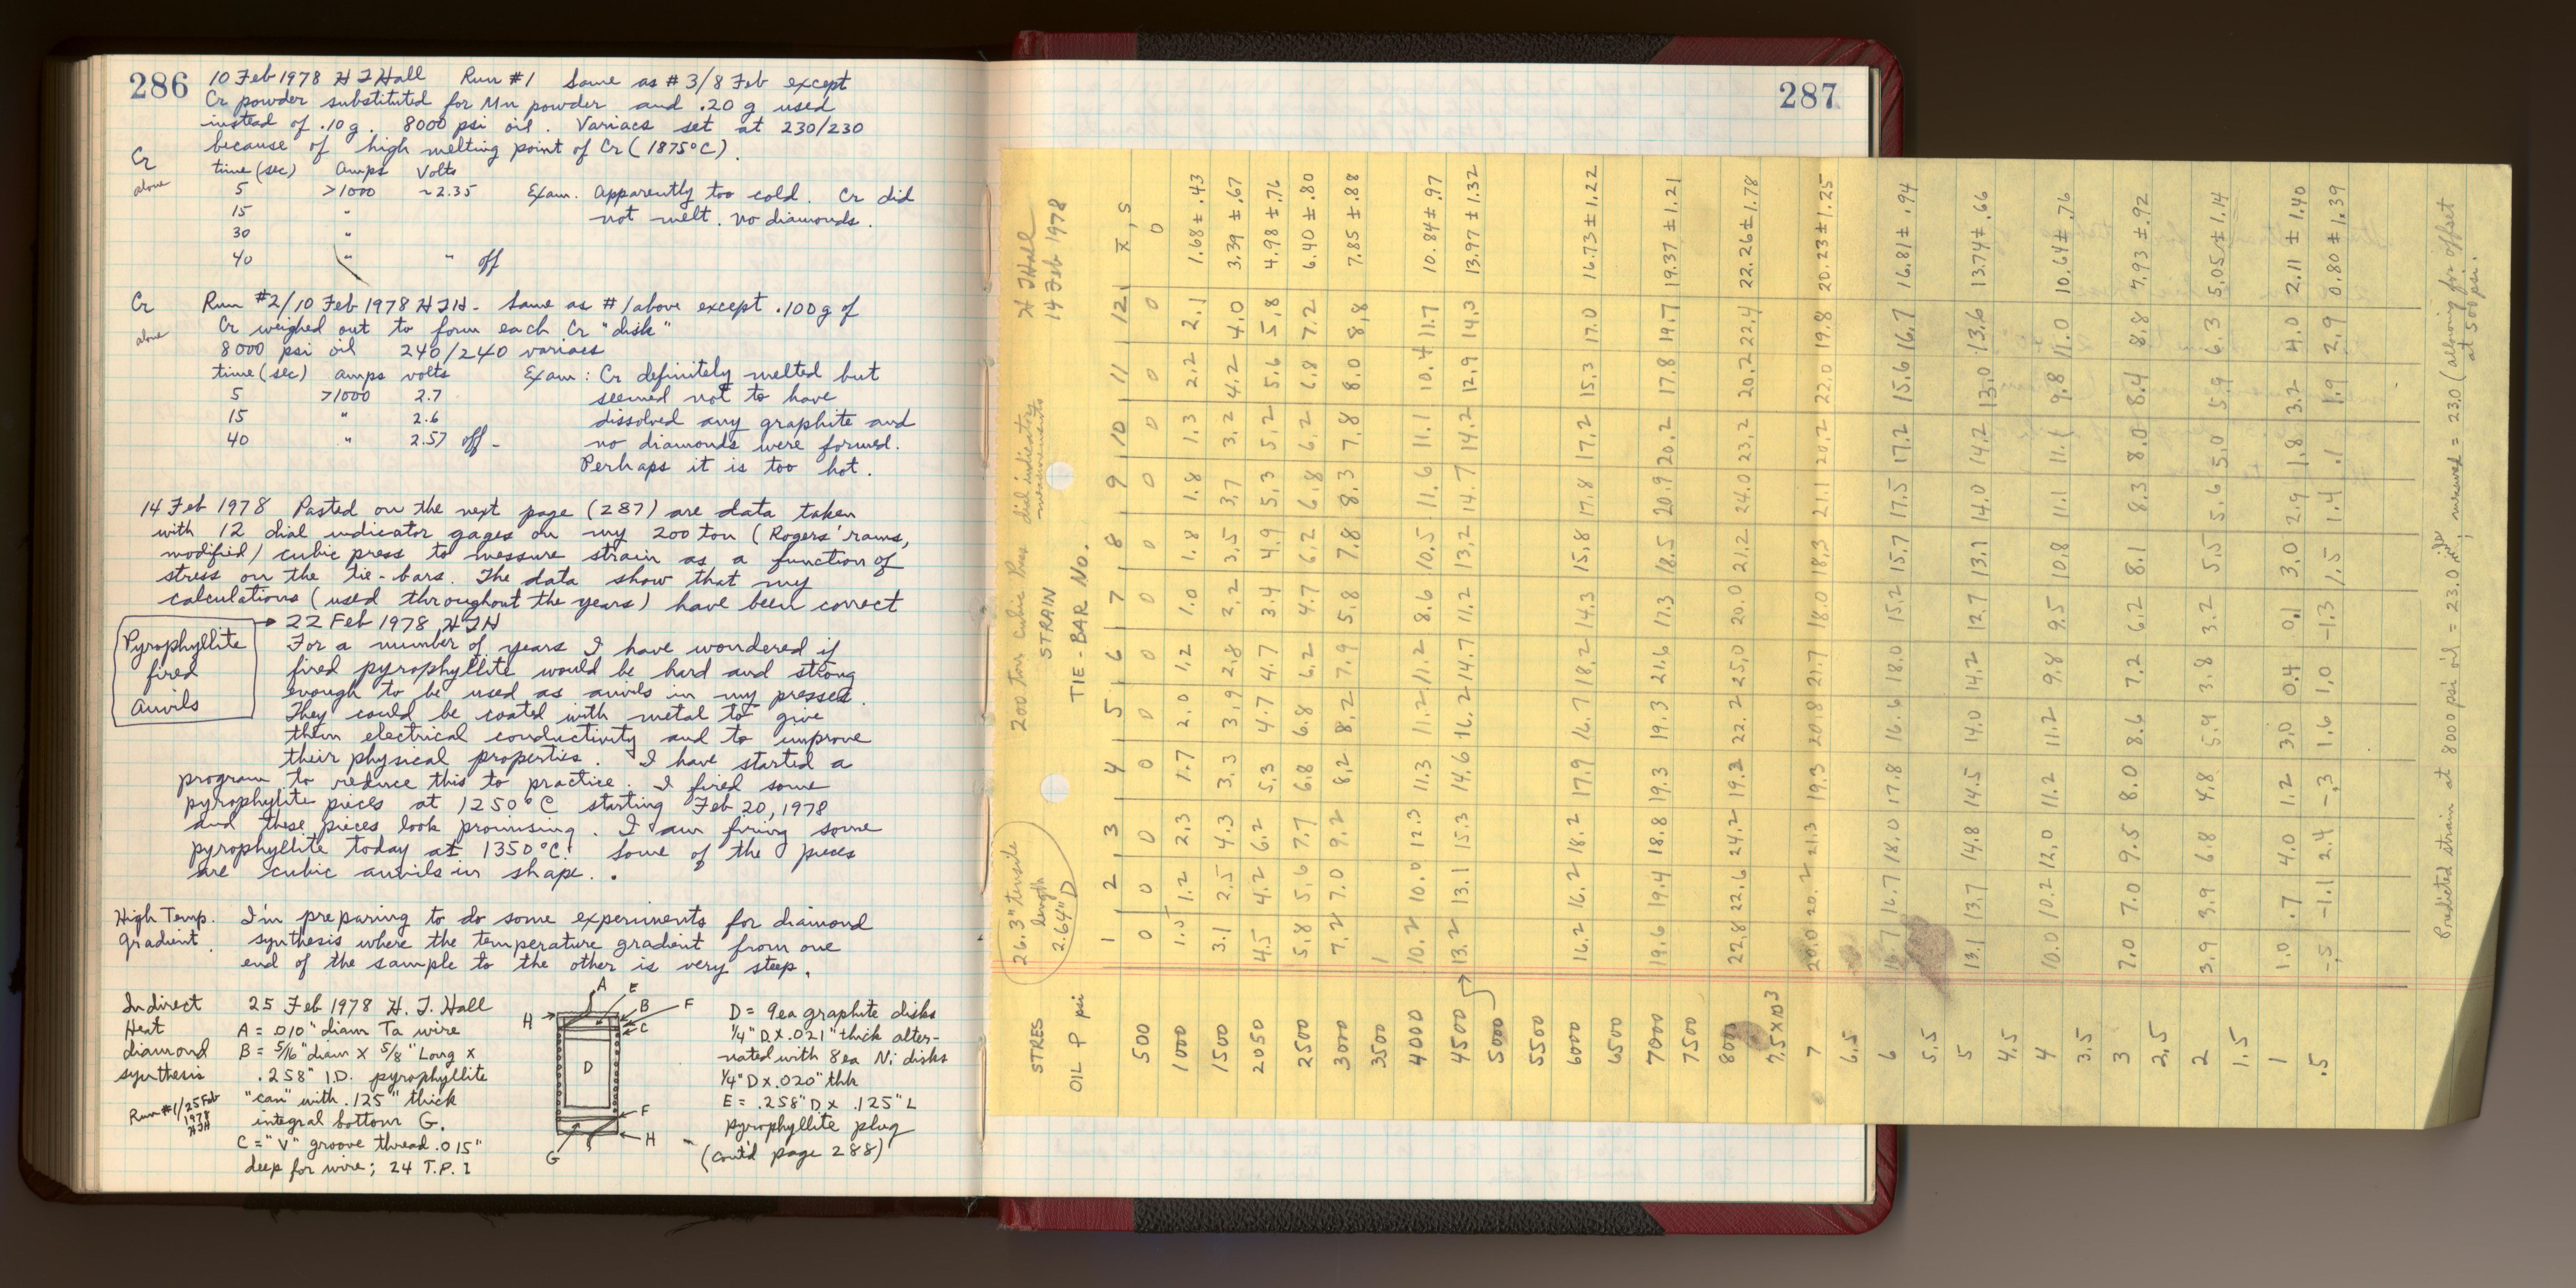 286
10 Feb 1978 H T Hall Run #1 Same as #3/8 Feb except
Cr powder substituted for Mn powder and .20 g used
instead of .10 g. 8000 psi oil. Variacs set at 230/230
because of high melting point of Cr (1875°C).
Cr
alone
time (sec) Amps Volts
5 >1000 ~2.35 Exam. Apparently too cold. Cr did
15 " not melt. No diamonds.
30 "
40 " " off
Cr
alone
Run #2/10 Feb 1978 HTH - Same as #1 above except .100 g of
Cr weighed out to form each Cr "disk"
8000 psi oil 240/240 variacs
time (sec) amps volts Exam: Cr definitely melted but
5 >1000 2.7 seemed not to have
15 " 2.6 dissolved any graphite and
40 " 2.57 off - no diamonds were formed.
Perhaps it is too hot.
14 Feb 1978 Pasted on the next page (287) are data taken
with 12 dial indicator gages on my 200 ton (Rogers' rams,
modified) cubic press to measure strain as a function of
stress on the tie-bars. The data show that my
calculations (used throughout the years) have been correct
Pyrophyllite
fired
Anvils
22 Feb 1978, HTH
For a number of years I have wondered if
fired pyrophyllite would be hard and strong
enough to be used as anvils in my presses.
They could be coated with metal to give
them electrical conductivity and to improve
their physical properties. I have started a
program to reduce this to practice. I fired some
pyrophylite pieces at 1250°C starting Feb 20, 1978
and these pieces look promising. I am firing some
pyrophyllite today at 1350°C. Some of the pieces
are cubic anvils in shape.
High Temp.
Gradient.
I'm preparing to do some experiments for diamond
synthesis where the temperature gradient from one
end of the sample to the other is very steep.
Indirect
Heat
diamond
synthesis
Run #1/25 Feb
1978
HTH
25 Feb 1978 H. T. Hall
A = .010" diam Ta wire
B = 5/16" diam x 5/8" Long x
.258" I.D. pyrophyllite
"can" with .125" thick
integral bottom G.
C = "V" groove thread .015"
deep for wire; 24 T.P.I
A
E
B
F
C
H
D
F
H
G
D = 9ea graphite disks
1/4" D x .021" thick alter-
nated with 8ea Ni disks
1/4" D x .020" thk
E = .258" D x .125" L
pyrophyllite plug
(cont'd page 288)
287
26.3" tensile
length
2.64" D
200 ton cubic Press dial indicator
measurements
H T Hall
14 Feb 1978
STRAIN
TIE-BAR No.
STRES
OIL P psi
1 2 3 4 5 6 7 8 9 10 11 12 x̄, s
500 0 0 0 0 0 0 0 0 0 0 0 0 0
1000 1.5 1.2 2.3 1.7 2.0 1.2 1.0 1.8 1.8 1.3 2.2 2.1 1.68 ± .43
1500 3.1 2.5 4.3 3.3 3.9 2.8 2.2 3.5 3.7 3.2 4.2 4.0 3.39 ± .67
2050 4.5 4.2 6.2 5.3 4.7 4.7 3.4 4.9 5.3 5.2 5.6 5.8 4.98 ± .76
2500 5.8 5.6 7.7 6.8 6.8 6.2 4.7 6.2 6.8 6.2 6.8 7.2 6.40 ± .80
3000 7.2 7.0 9.2 8.2 8.2 7.9 5.8 7.8 8.3 7.8 8.0 8.8 7.85 ± .88
3500 1
4000 10.2 10.0 12.3 11.3 11.2 11.2 8.6 10.5 11.6 11.1 10.4 11.7 10.84 ± .97
4500 13.2 13.1 15.3 14.6 16.2 14.7 11.2 13.2 14.7 14.2 12.9 14.3 13.97 ± 1.32
5000
5500
6000 16.2 16.2 18.2 17.9 16.7 18.2 14.3 15.8 17.8 17.2 15.3 17.0 16.73 ± 1.22
6500
7000 19.6 19.4 18.8 19.3 19.3 21.6 17.3 18.5 20.9 20.2 17.8 19.7 19.37 ± 1.21
7500
8000 22.8 22.6 24.2 19.2 22.2 25.0 20.0 21.2 24.0 23.2 20.2 22.4 22.26 ± 1.78
7.5 x 10³
7 20.0 20.2 21.3 19.3 20.8 21.7 18.0 18.3 21.1 20.2 22.0 19.8 20.23 ± 1.25
6.5
6 16.7 16.7 18.0 17.8 16.6 18.0 15.2 15.7 17.5 17.2 15.6 16.7 16.81 ± .94
5.5
5 13.1 13.7 14.8 14.5 14.0 14.2 12.7 13.1 14.0 14.2 13.0 13.6 13.74 ± .66
4.5
4 10.0 10.2 12.0 11.2 11.2 9.8 9.5 10.8 11.1 11.1 9.8 11.0 10.64 ± .76
3.5
3 7.0 7.0 9.5 8.0 8.6 7.2 6.2 8.1 8.3 8.0 8.4 8.8 7.93 ± .92
2.5
2 3.9 3.9 6.8 4.8 5.9 3.8 3.2 5.5 5.6 5.0 5.9 6.3 5.05 ± 1.14
1.5
1 1.0 .7 4.0 1.2 3.0 0.4 0.1 3.0 2.9 1.8 3.2 4.0 2.11 ± 1.40
.5 -.5 -1.1 2.4 -.3 1.6 1.0 -1.3 1.5 1.4 .1 1.9 2.9 0.80 ± 1.39
Predicted strain at 8000 psi oil = 23.0 mils; measured = 23.0 (allowing for offset
at 500 psi.